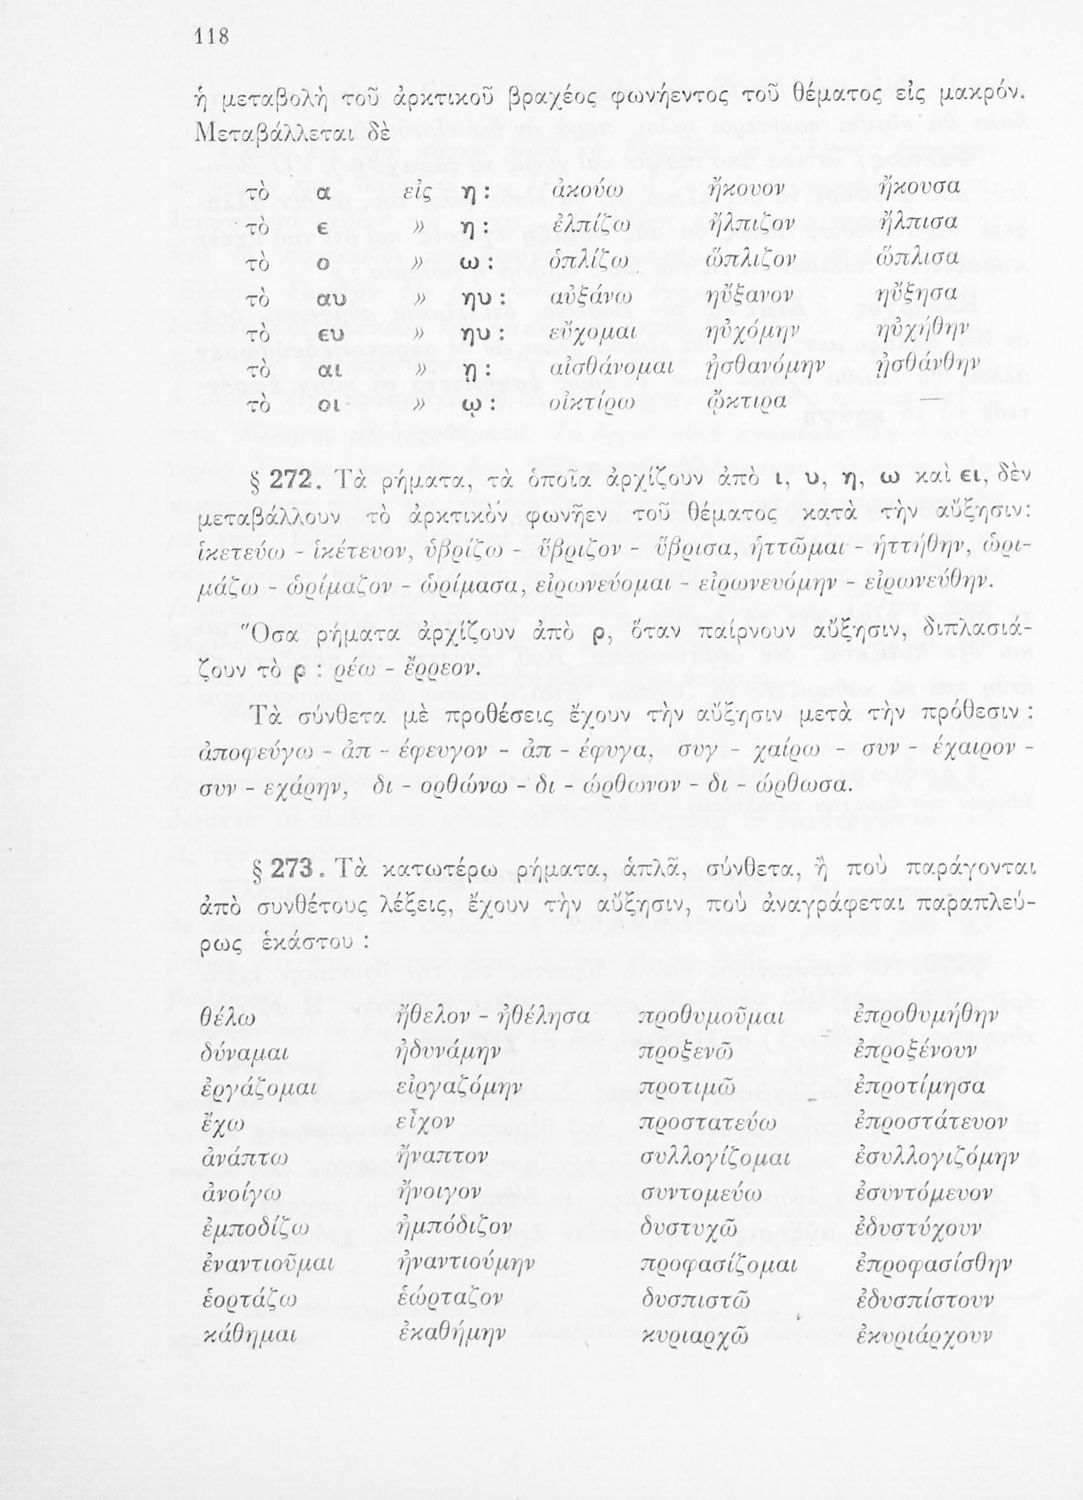 118
ἡ μεταβολὴ τοῦ ἀρκτικοῦ βραχέος φωνήεντος τοῦ θέματος εἰς μακρόν.
Μεταβάλλεται δὲ
τὸ α εἰς η : ἀκούω ἤκουον ἤκουσα
τὸ ε » η : ἐλπίζω ἤλπιζον ἤλπισα
τὸ ο » ω : ὁπλίζω ὥπλιζον ὥπλισα
τὸ αυ » ηυ : αὐξάνω ηὔξανον ηὔξησα
τὸ ευ » ηυ : εὔχομαι ηὐχόμην ηὐχήθην
τὸ αι » ῃ : αἰσθάνομαι ᾐσθανόμην ᾐσθάνθην
τὸ οι » ῳ : οἰκτίρω ᾤκτιρα —
§ 272. Τὰ ρήματα, τὰ ὁποῖα ἀρχίζουν ἀπὸ ι, υ, η, ω καὶ ει, δὲν
μεταβάλλουν τὸ ἀρκτικὸν φωνῆεν τοῦ θέματος κατὰ τὴν αὔξησιν:
ἱκετεύω - ἱκέτευον, ὑβρίζω - ὕβριζον - ὕβρισα, ἡττῶμαι - ἡττήθην, ὡρι-
μάζω - ὡρίμαζον - ὡρίμασα, εἰρωνεύομαι - εἰρωνευόμην - εἰρωνεύθην.
Ὅσα ρήματα ἀρχίζουν ἀπὸ ρ, ὅταν παίρνουν αὔξησιν, διπλασιά-
ζουν τὸ ρ : ρέω - ἔρρεον.
Τὰ σύνθετα μὲ προθέσεις ἔχουν τὴν αὔξησιν μετὰ τὴν πρόθεσιν :
ἀποφεύγω - ἀπ - έφευγον - ἀπ - έφυγα, συγ - χαίρω - συν - έχαιρον -
συν - εχάρην, δι - ορθώνω - δι - ώρθωνον - δι - ώρθωσα.
§ 273. Τὰ κατωτέρω ρήματα, ἁπλᾶ, σύνθετα, ἢ ποὺ παράγονται
ἀπὸ συνθέτους λέξεις, ἔχουν τὴν αὔξησιν, ποὺ ἀναγράφεται παραπλεύ-
ρως ἑκάστου :
θέλω ἤθελον - ἠθέλησα προθυμοῦμαι ἐπροθυμήθην
δύναμαι ἠδυνάμην προξενῶ ἐπροξένουν
ἐργάζομαι εἰργαζόμην προτιμῶ ἐπροτίμησα
ἔχω εἶχον προστατεύω ἐπροστάτευον
ἀνάπτω ἤναπτον συλλογίζομαι ἐσυλλογιζόμην
ἀνοίγω ἤνοιγον συντομεύω ἐσυντόμευον
ἐμποδίζω ἠμπόδιζον δυστυχῶ ἐδυστύχουν
ἐναντιοῦμαι ἠναντιούμην προφασίζομαι ἐπροφασίσθην
ἑορτάζω ἑώρταζον δυσπιστῶ ἐδυσπίστουν
κάθημαι ἐκαθήμην κυριαρχῶ ἐκυριάρχουν